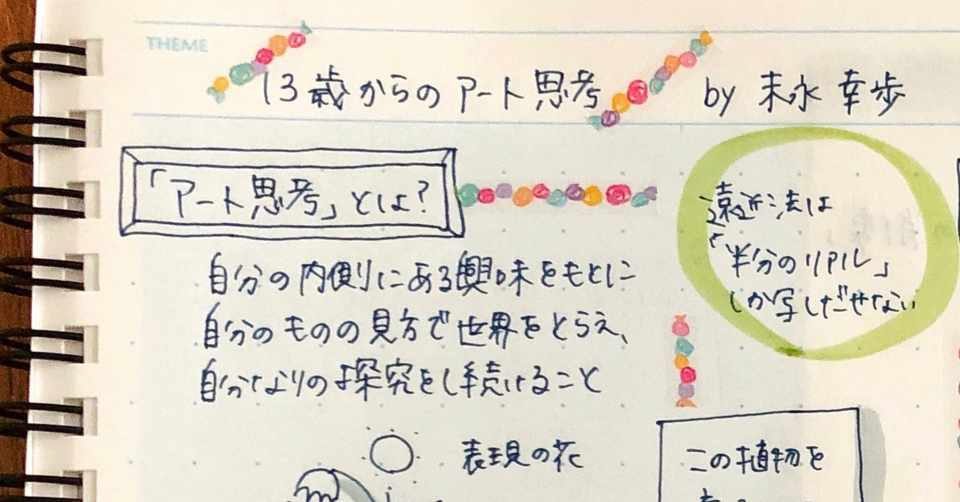 THEME
13歳からのアート思考 by 末永幸歩
「アート思考」とは?
自分の内側にある興味をもとに
自分のものの見方で世界をとらえ、
自分なりの探究をし続けること
遠近法は
「半分のリアル」
しか写しだせない
表現の花
この植物を